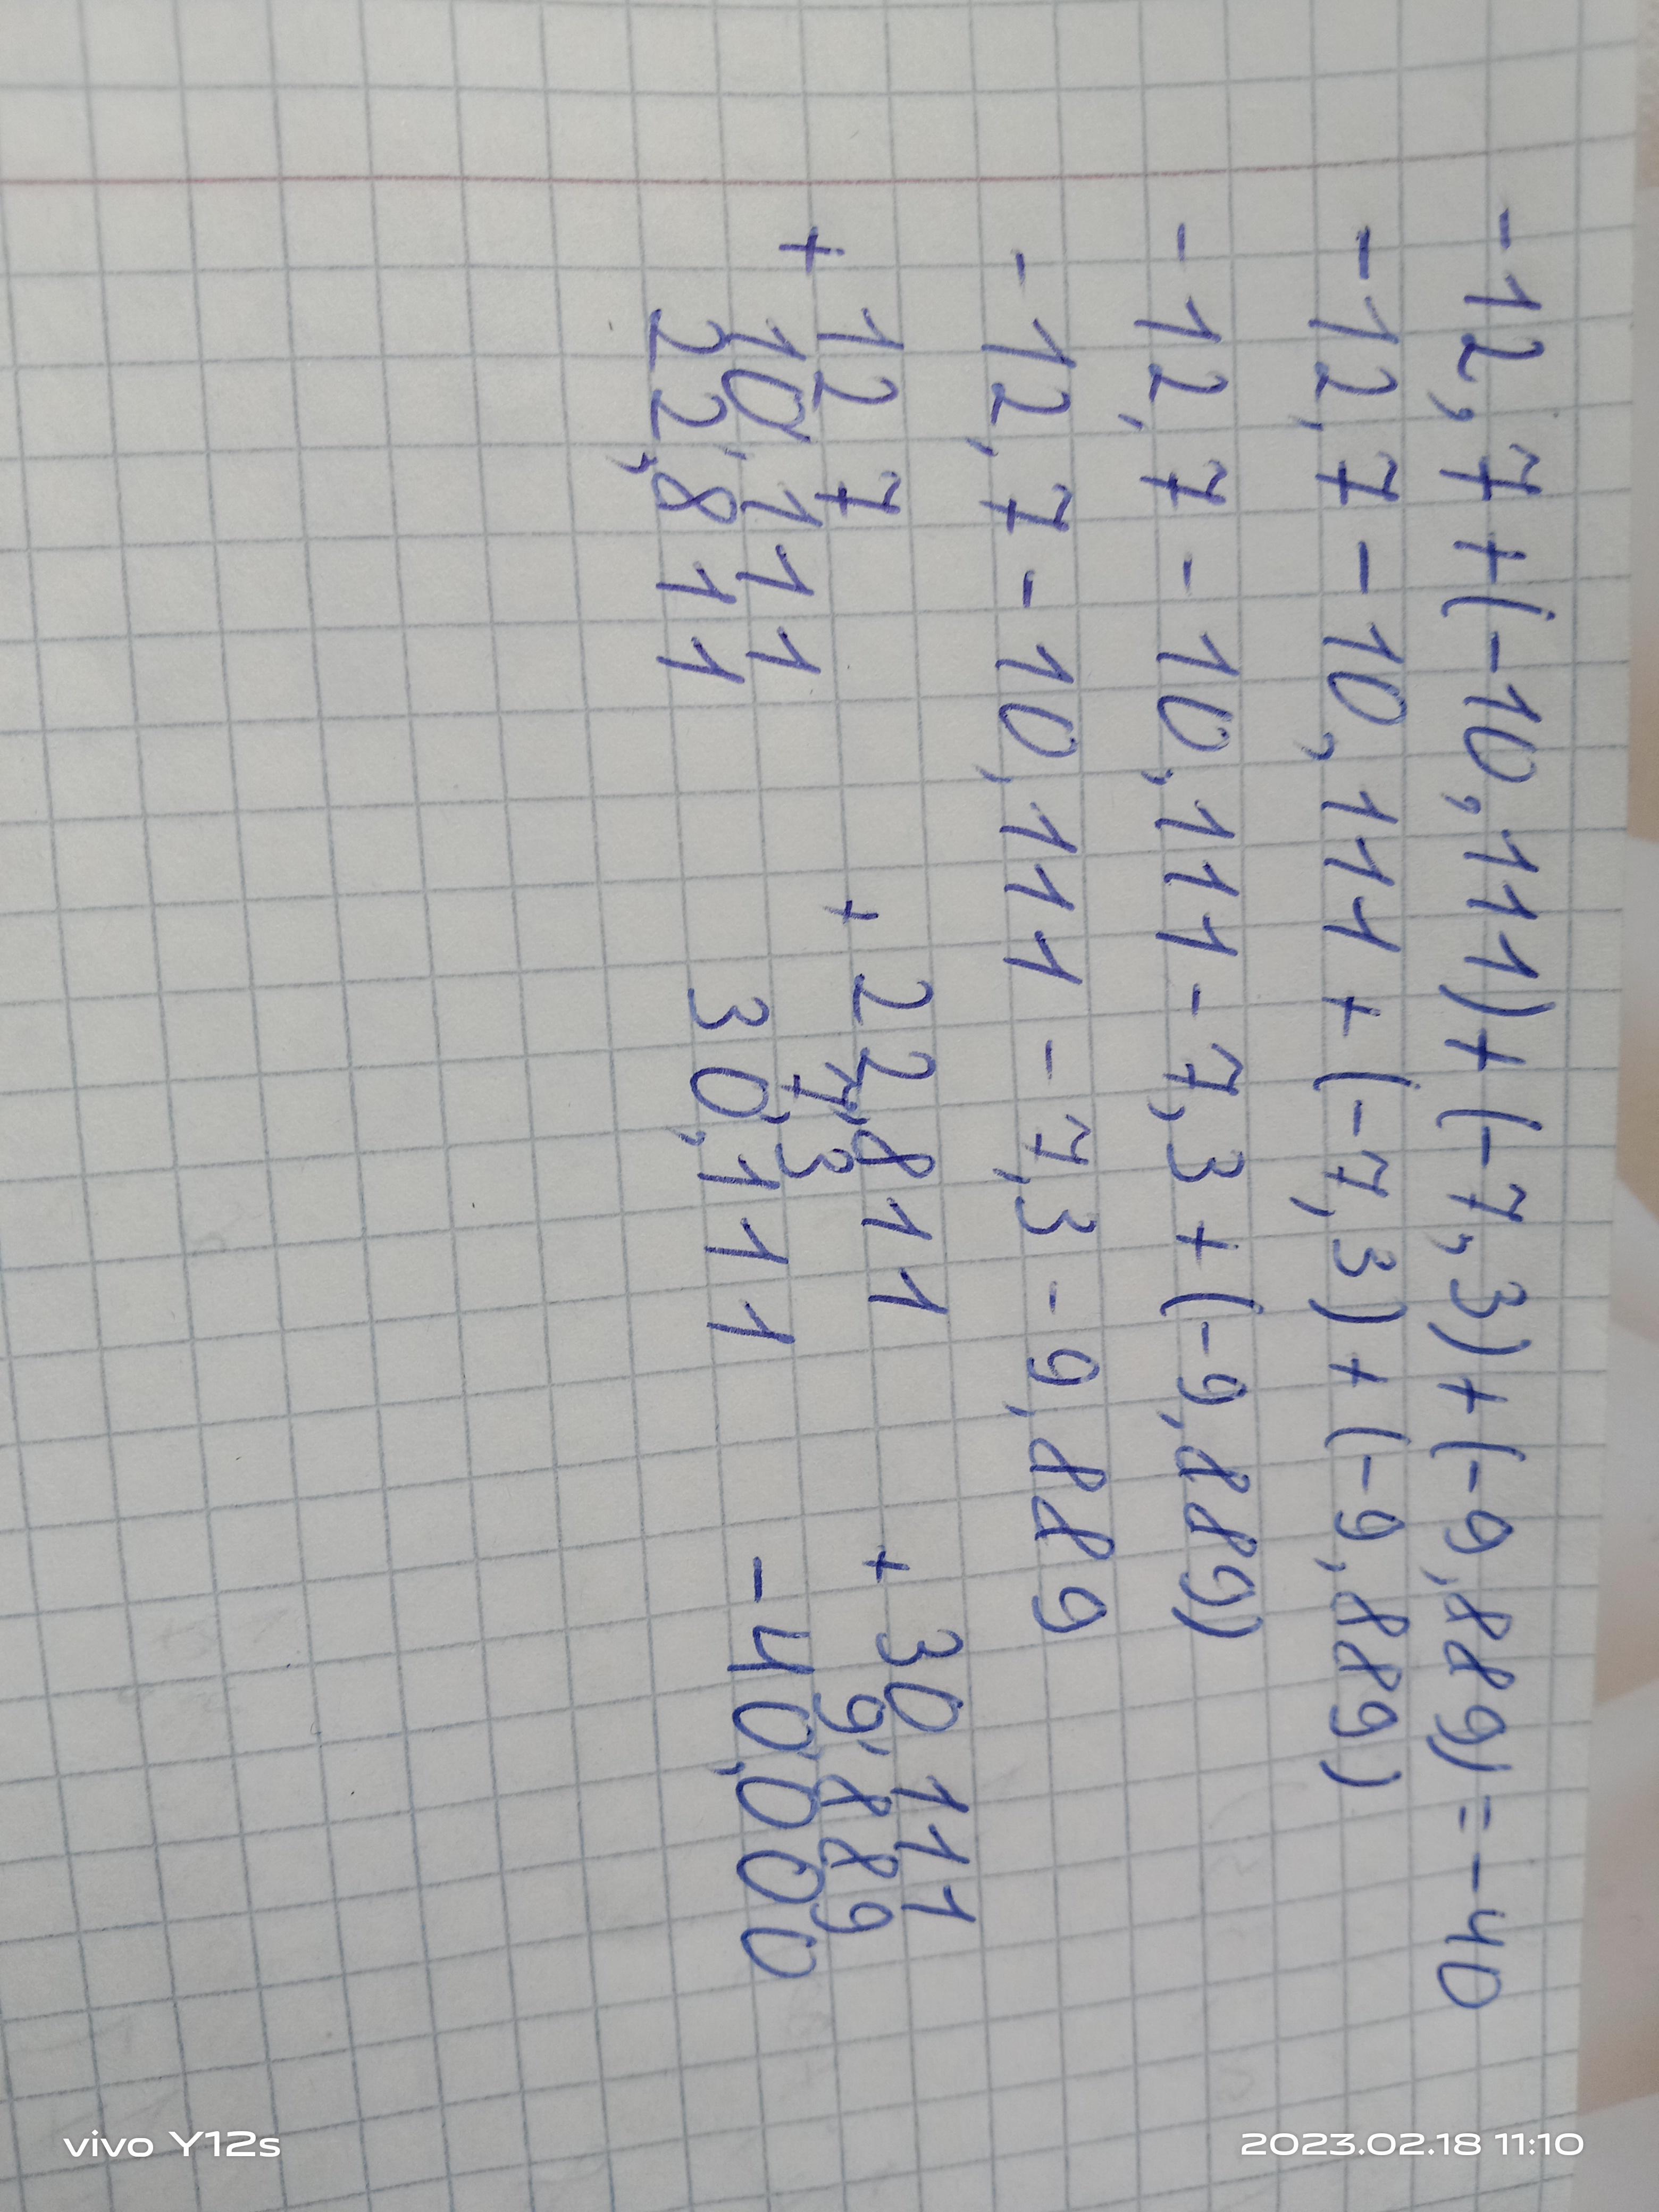 -12,7+(-10,111)+(-7,3)+(-9,889)=-40
-12,7-10,111+(-7,3)+(-9,889)
-12,7-10,111-7,3+(-9,889)
-12,7-10,111-7,3-9,889
+ 12 7
10,111
22,811
+ 22,811
7,3
30,111
+ 30 111
9,889
-40,000
vivo Y12s
2023.02.18 11:10